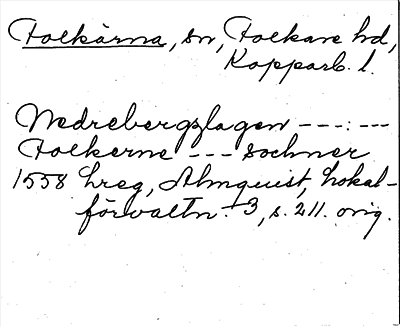 Folkärna, sn, Folkare hd,
Kopparb. l.
Nedrebergslagen ---:---
Folkerne --- sochner
1558 hreg, Almquist, Lokal-
förvaltn. 3, s. 211. orig.